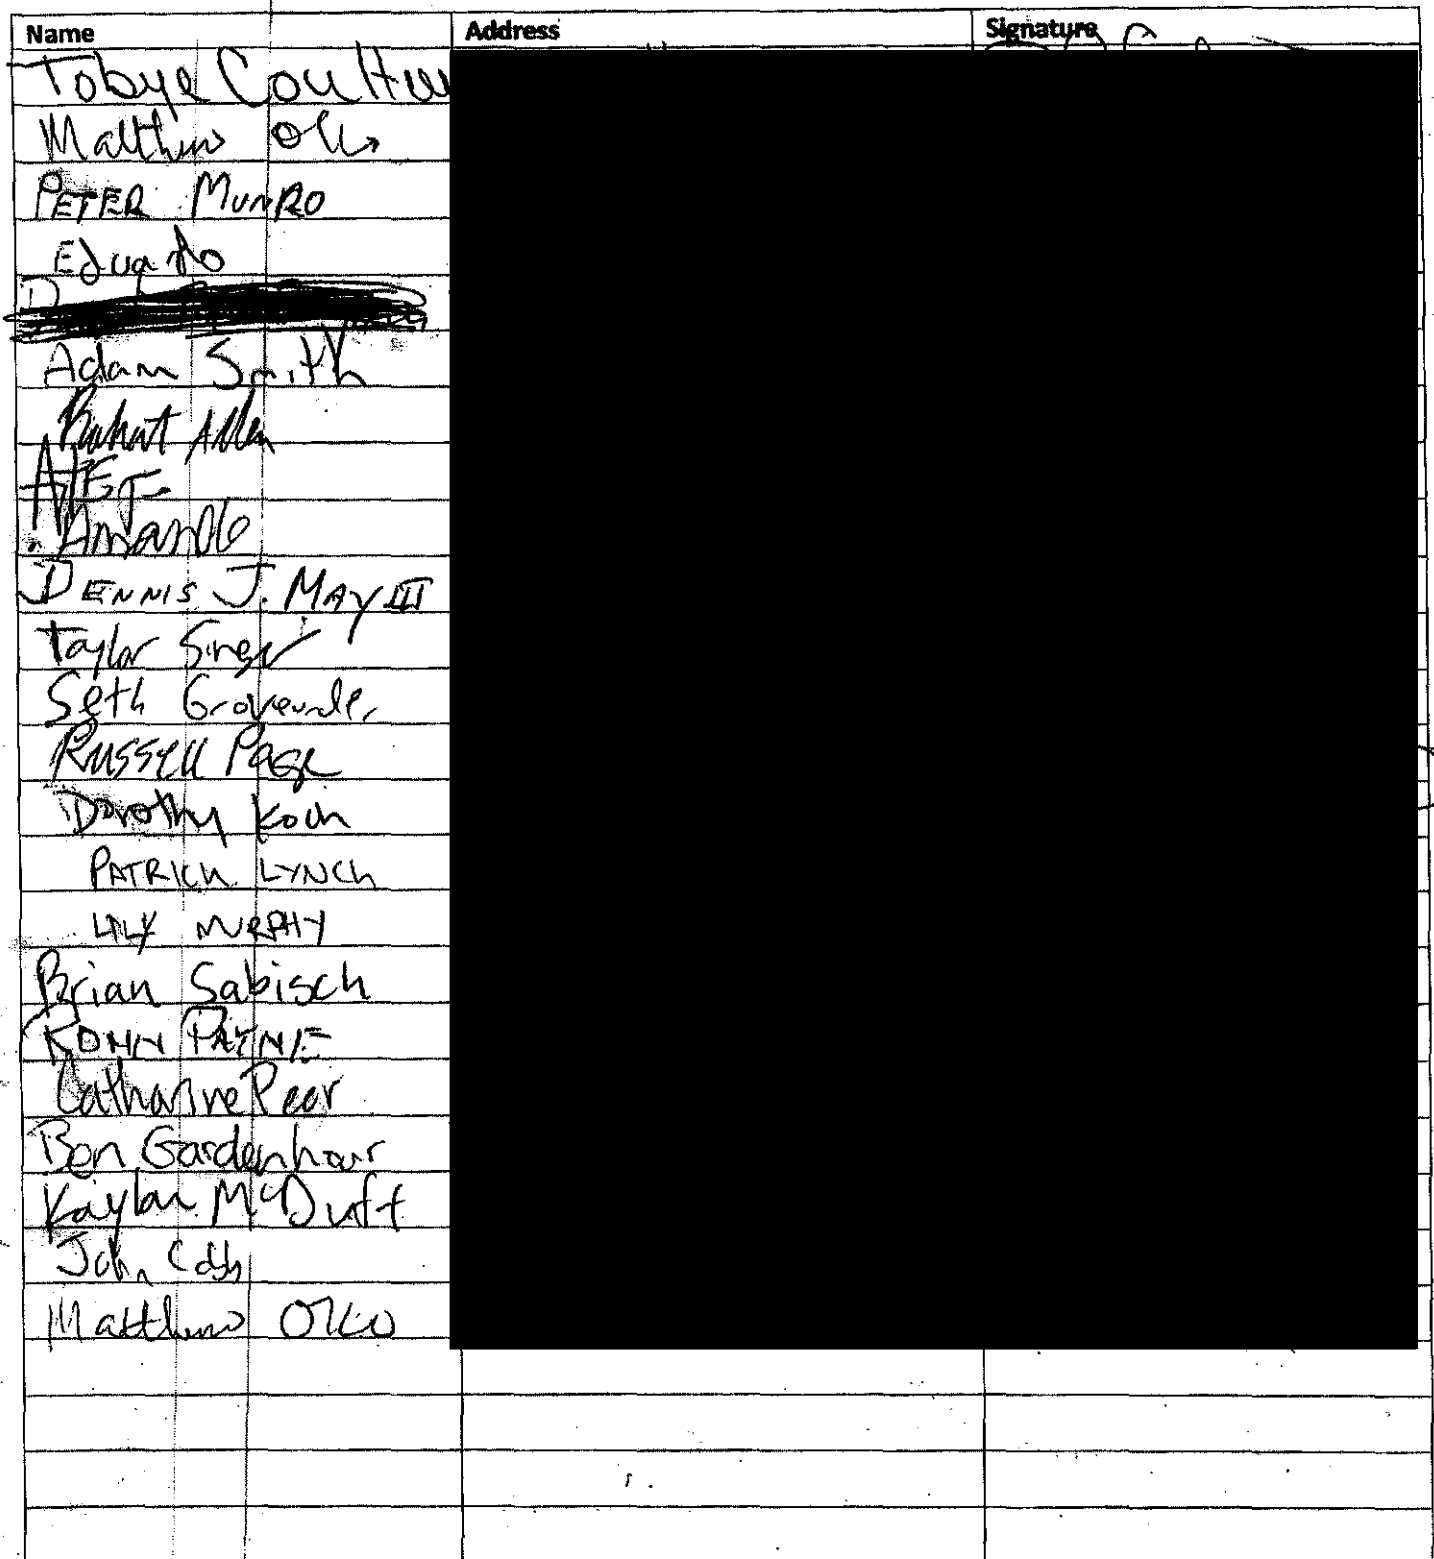 Name Address Signature
Tobye
Matthew
PETER MUNRO
Eduardo
Adam Smith
Allen
Amando
DENNIS J. MAY III
Taylor Singer
Seth
RUSSELL PAGE
Dorothy Koch
PATRICK LYNCH
LILY MURPHY
Brian Sabisch
PAYNE
Catharine Pear
Ben Gardenhour
Kaylan McDuft
John
Matthew